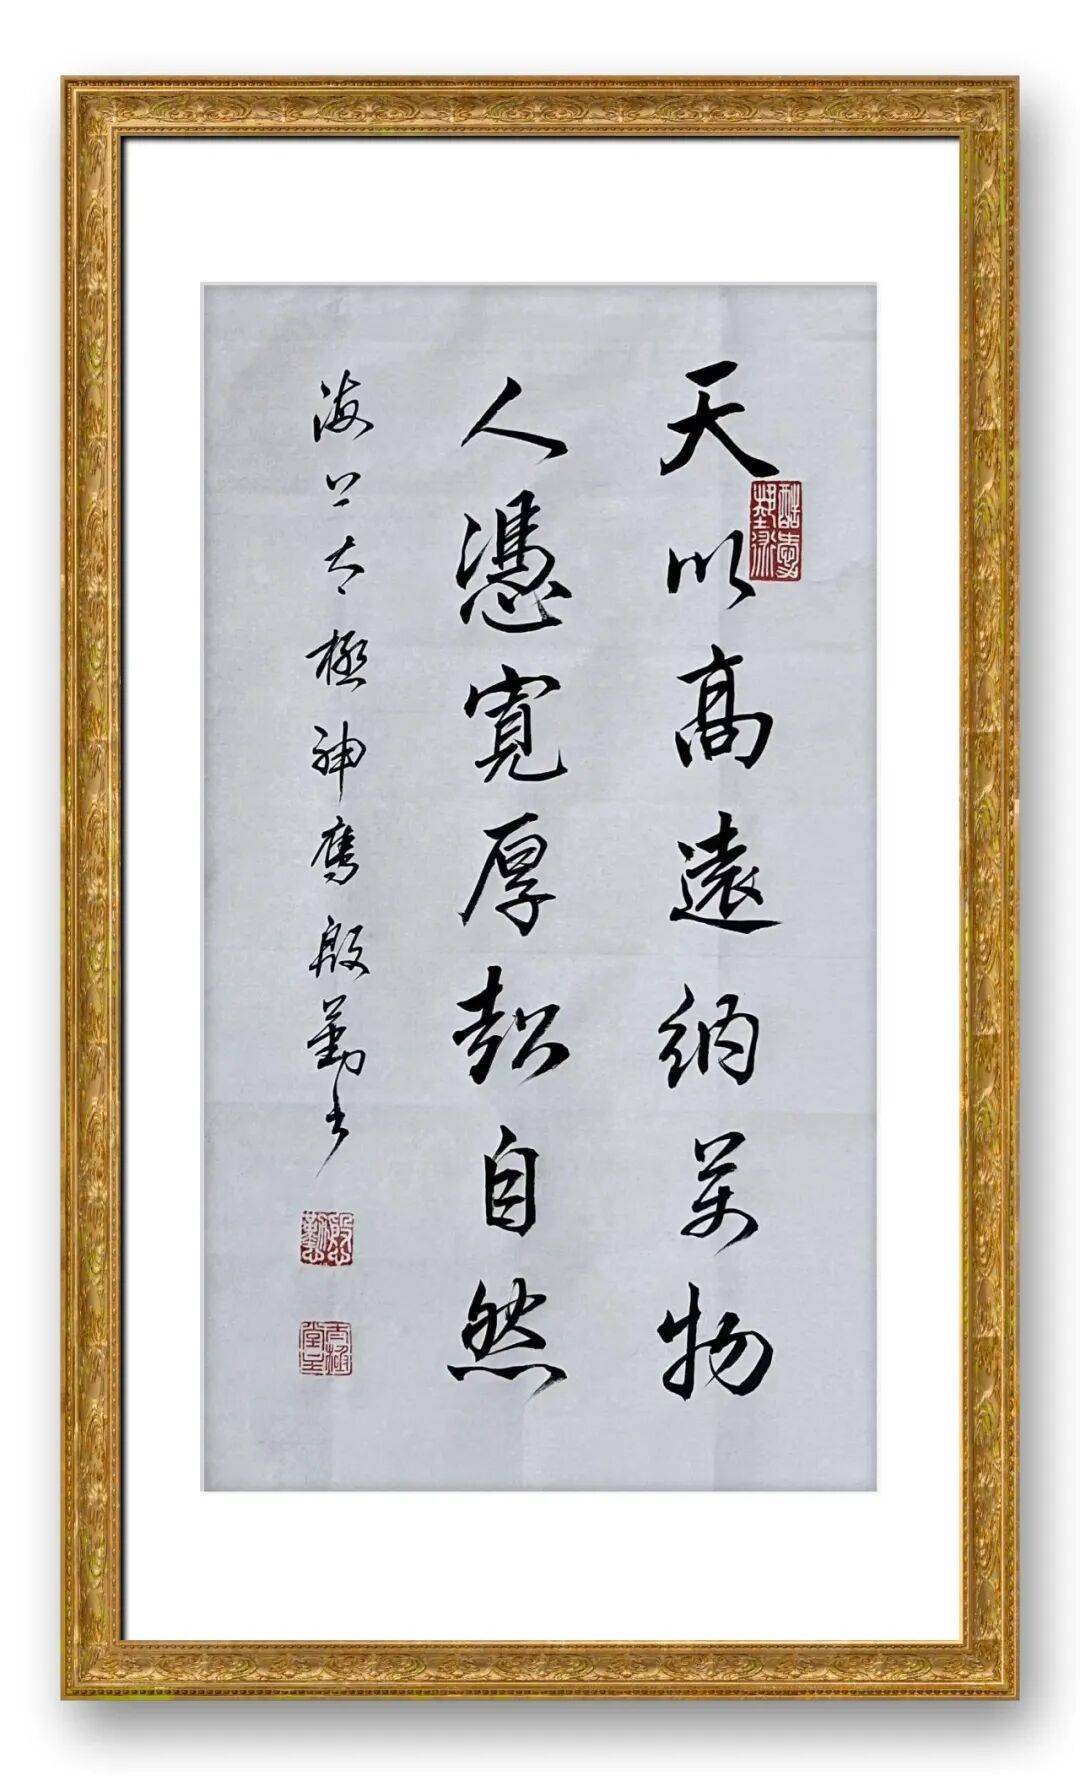 天以高遠納萬物
人憑寬厚自然
海上太極神鹰殷勤书